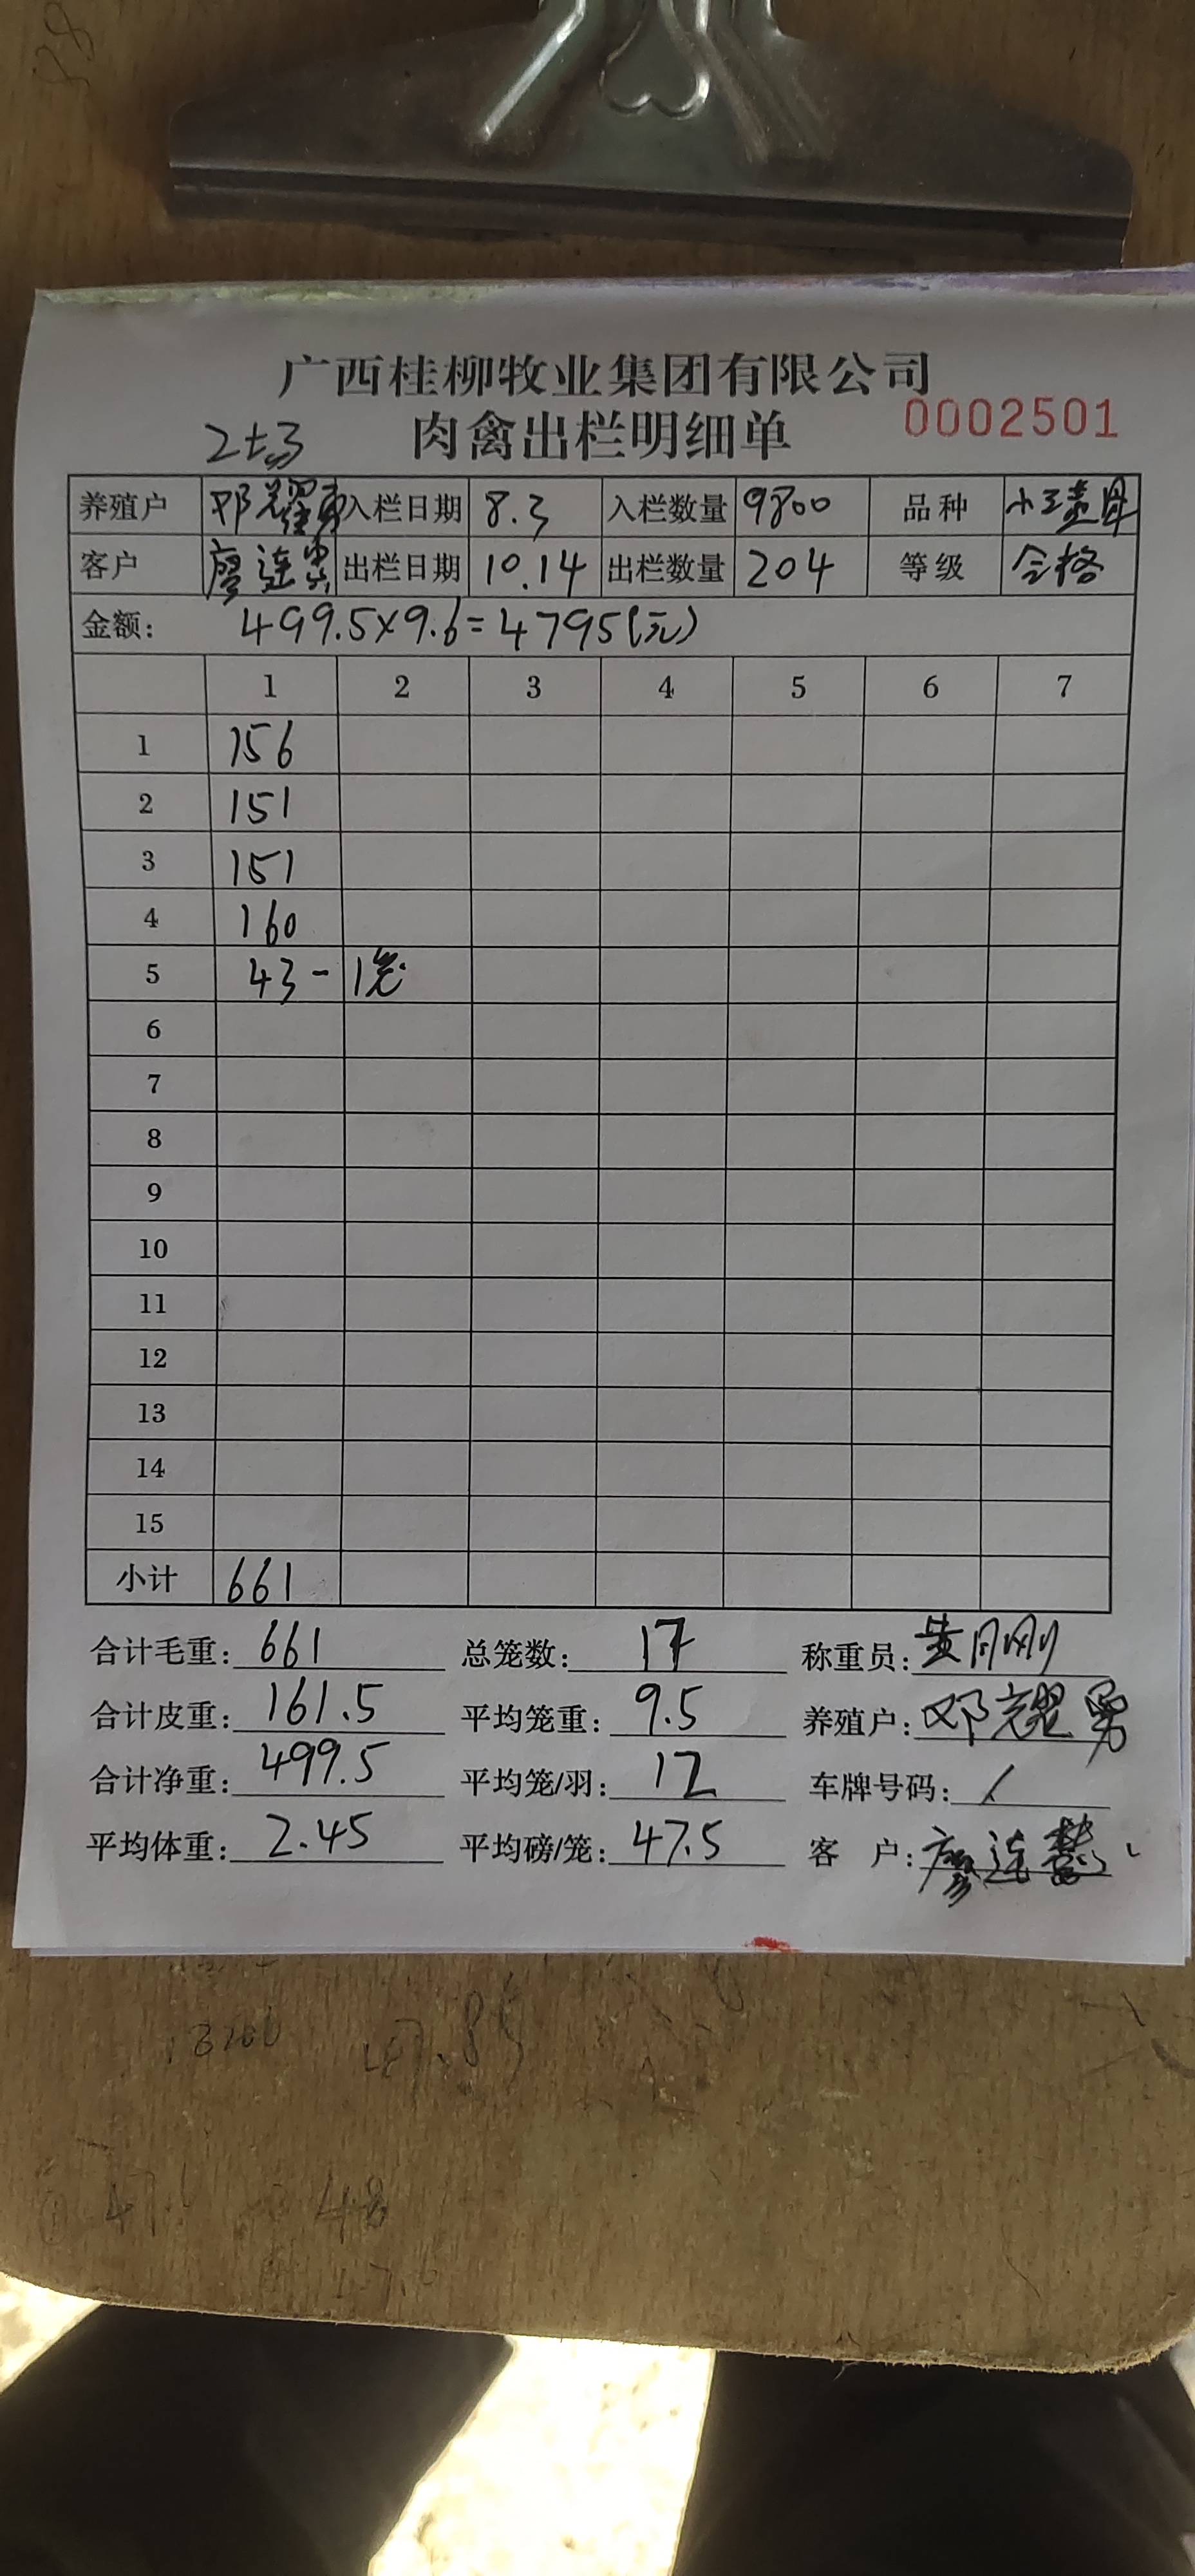 广西桂柳牧业集团有限公司
肉禽出栏明细单 0002501
养殖户 邓耀勇 入栏日期 8.3 入栏数量 9800 品种
客户 廖连 出栏日期 10.14 出栏数量 204 等级 合格
金额: 499.5×9.6=4795(元)
1 2 3 4 5 6 7
1 156
2 151
3 151
4 160
5 43-1笼
6
7
8
9
10
11
12
13
14
15
小计 661
合计毛重: 661 总笼数: 17 称重员:
合计皮重: 161.5 平均笼重: 9.5 养殖户: 邓耀勇
合计净重: 499.5 平均笼/羽: 12 车牌号码: /
平均体重: 2.45 平均磅/笼: 47.5 客 户: 廖连
48